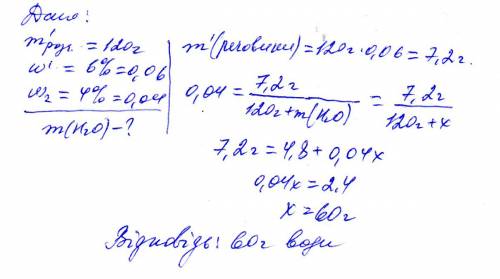 Дано:
m'розч. = 120г
w' = 6% = 0,06
w₂ = 4% = 0,04
m(H₂O) - ?
m'(речовини) = 120г · 0,06 = 7,2г.
0,04 = 7,2г / 120г + m(H₂O) = 7,2г / 120г + x
7,2г = 4,8 + 0,04x
0,04x = 2,4
x = 60г
Відповідь: 60г води